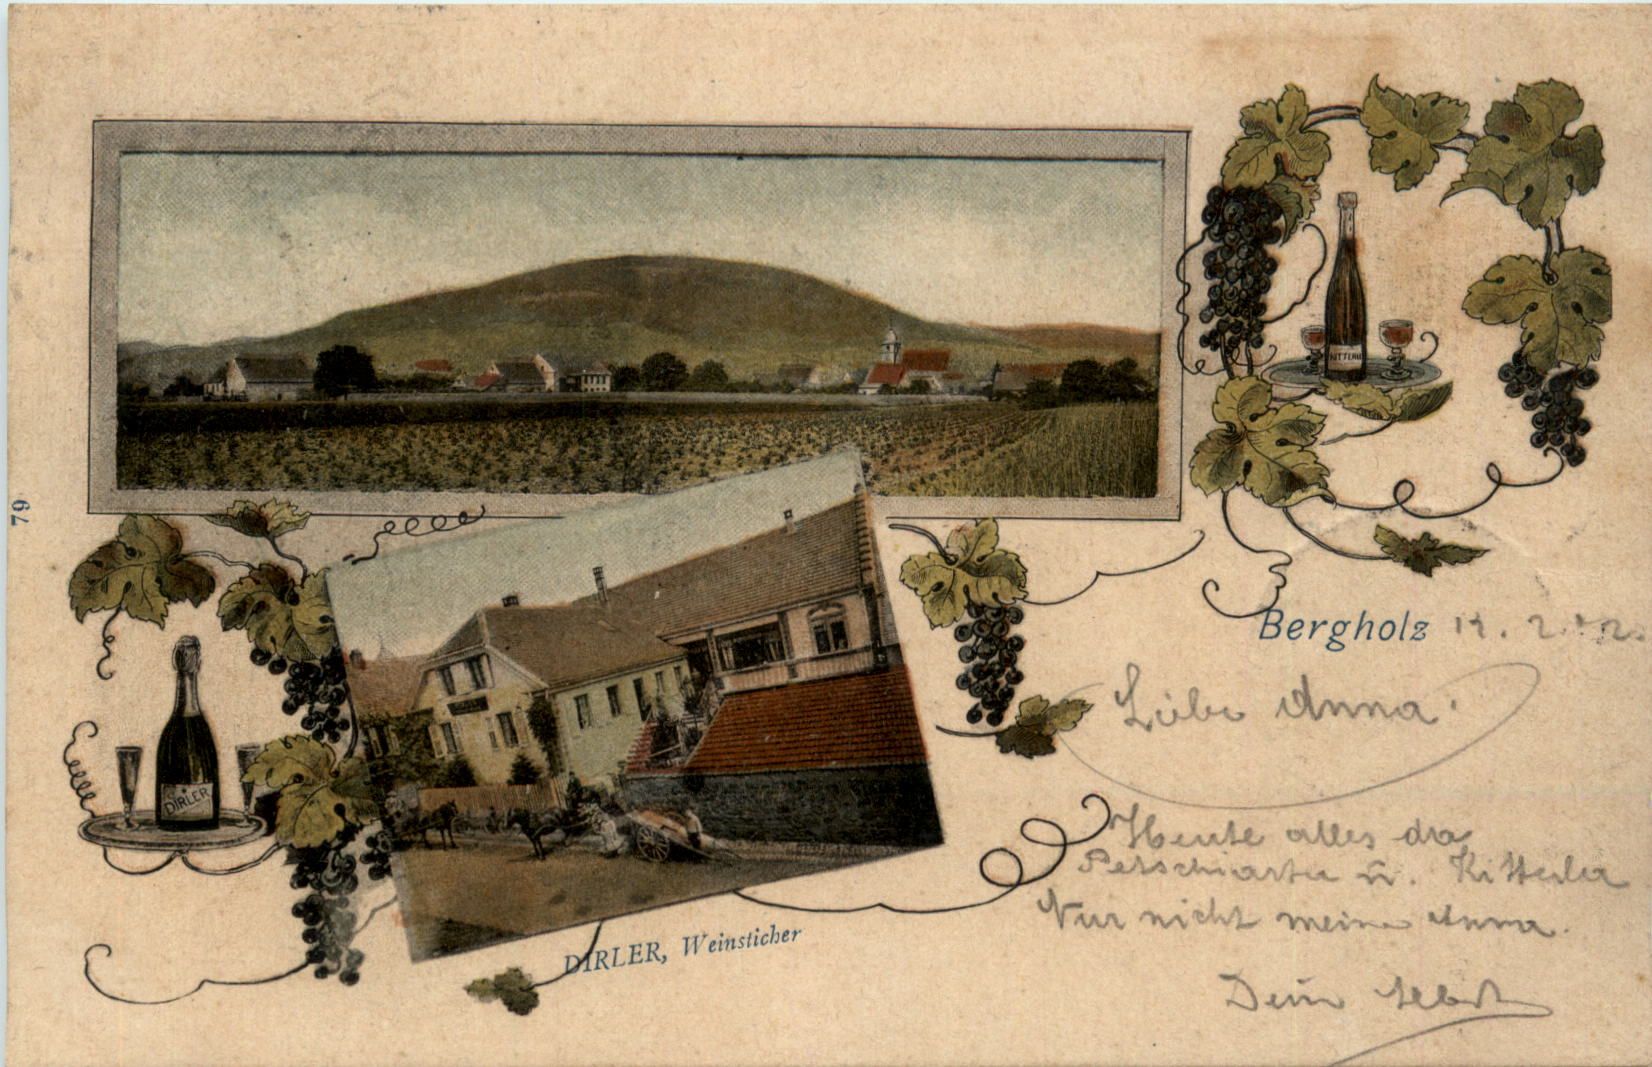 79
KITTERLÉ
DIRLER
DIRLER, Weinsticher
Bergholz 14. 2.
Liebe Anna.
Heute alles da
u. Kitterler
Nur nicht meine Anna.
Dein Albert